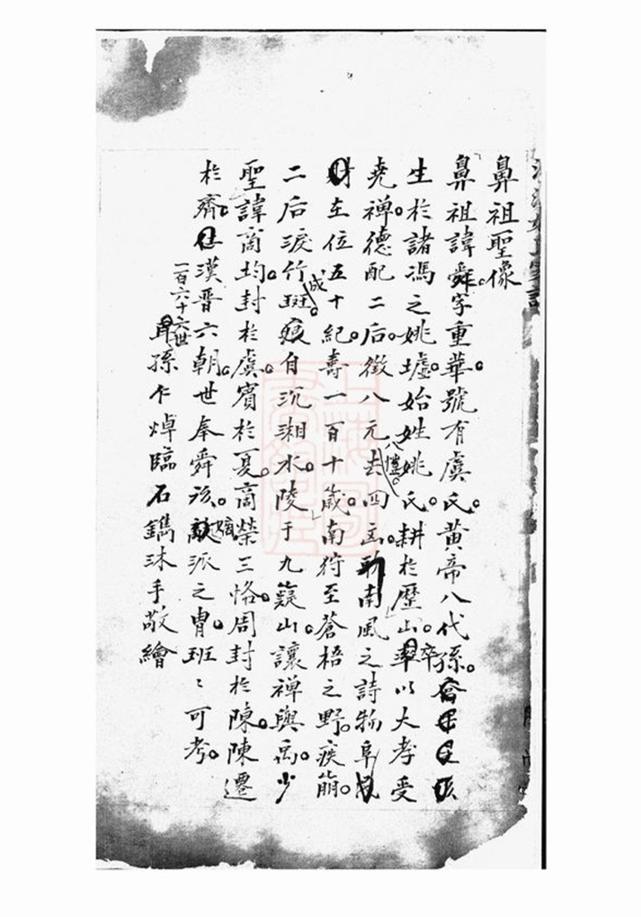 鼻祖聖像
鼻祖諱舜。字重華。號有虞氏。黃帝八代孫。
生於諸馮之姚墟。始姓姚氏。耕於歷山。卒以大孝受
堯禪。德配二后。徵八元八愷。去四凶。歌南風之詩物阜民
財在位五十紀。壽一百十歲。南狩至蒼梧之野。疾崩。
二后淚竹成斑。痕自沉湘水。陵于九嶷山。讓禪與禹。少
聖諱商均封於虞。賓於夏。商榮三恪周封於陳。陳遷
於齊。漢晉六朝。世奉舜祀。嬀派之胄。班〻可考。
一百六十六世耳孫乍焯臨石鐫沐手敬繪